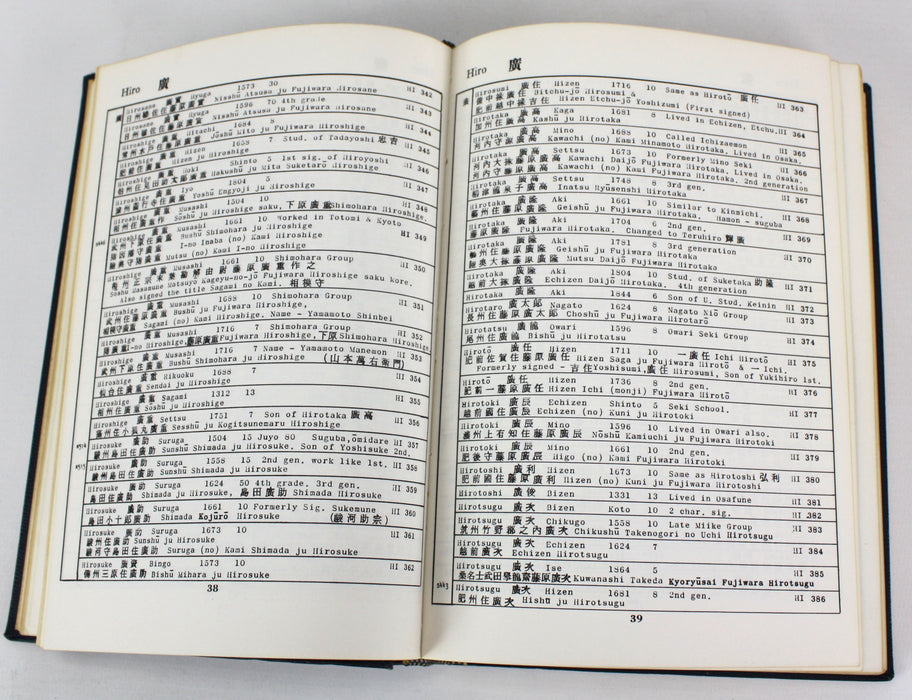 Hiro 廣
Hirosane 廣實 Hyuga 1573 30 HI 342
日州 住藤原廣實 Nisshū Atsusa ju Fujiwara Hirosane
Hirosane 廣實 Hyuga 1596 70 4th grade HI 343
日州 住藤原廣實 Nisshū Atsusa ju Fujiwara Hirosane
Hiroshige 廣重 Hitachi 1684 8 HI 344
常州水戸住藤原廣重 Jōshū Mito ju Fujiwara Hiroshige
Hiroshige 廣重 Hizen 1658 7 Stud. of Tadayoshi 忠吉 HI 345
肥前住廣重 Hizen ju Hiroshige
Hiroshige 廣重 Hoki Shinto 5 1st sig. of Hiroyoshi HI 346
伯州住見田助太郎廣重 Hakushū ju Mita Suketarō Hiroshige
Hiroshige 廣重 Iyo 1804 5 HI 347
廣重 Yoshū Engyoji ju Hiroshige
Hiroshige 廣重 Musashi 1504 10 HI 348
相州住廣重作 Soshū ju Hiroshige saku, 下原廣重Shimohara Hiroshige
Hiroshige 廣重 Musashi 1661 10 Worked in Totomi & Kyoto HI 349
武州下原住廣重 Bushū Shimohara ju Hiroshige
廣重 I-no Inaba (no) Kami Hiroshige
廣重 Mutsu (no) Kami I-no Hiroshige
Hiroshige 廣重 Musashi 1661 10 Shimohara Group HI 350
奥州正宗末葉勘解由尉藤原廣重作之
Oshū Masamune Matsuyo Kageyu-no-jō Fujiwara Hiroshige saku kore.
Also signed the title Sagami no Kami. 相模守
Hiroshige 廣重 Musashi 1688 10 Shimohara Group HI 351
武州住藤原廣重 Bushū ju Fujiwara Hiroshige,
相模守廣重 Sagami (no) Kami Hiroshige. Name - Yamamoto Shinbei
Hiroshige 廣重 Musashi 1716 7 Shimohara Group HI 352
廣重I-no Hiroshige,藤原廣重Fujiwara Hiroshige,下原Shimohara Hiroshige
Hiroshige 廣重 Musashi 1716 7 Name - Yamamoto Manemon HI 353
武州下原住廣重 Bushū Shimohara ju Hiroshige (山本萬右衛門)
Hiroshige 廣重 Rikuoku 1688 7 HI 354
仙台住廣重 Sendai ju Hiroshige
Hiroshige 廣重 Sagami 1312 13 HI 355
相州住廣重 Sōshū ju Hiroshige
Hiroshige 廣重 Settsu 1751 7 Son of Hirotaka 廣高 HI 356
攝州住小狐丸廣重 Sesshū ju Kogitsunemaru Hiroshige
Hirosuke 廣助 Suruga 1504 15 Juyo 80 Suguba,ōmidare HI 357
駿州島田住廣助 Sunshū Shimada ju Hirosuke. Son of Yoshisuke 2nd.
Hirosuke 廣助 Suruga 1558 15 2nd gen, work like 1st. HI 358
駿州島田住廣助 Sunshū Shimada ju Hirosuke
Hirosuke 廣助 Suruga 1624 50 4th grade, 3rd gen. HI 359
島田住廣助 Shimada ju Hirosuke, 島田廣助 Shimada Hirosuke
Hirosuke 廣助 Suruga 1661 10 Formerly Sig. Sukemune HI 360
島田小十郎廣助 Shimada Kojūrō Hirosuke (駿河助宗)
Hirosuke 廣助 Suruga 1673 10 HI 361
駿州住廣助 Sunshū ju Hirosuke
駿河守島田住廣助 Suruga (no) Kami Shimada ju Hirosuke
Hirosuke 廣資 Bingo 1573 10 HI 362
備州三原住廣資 Bishū Mihara ju Hirosuke
38
Hiro 廣
Hirosumi 廣住 Hizen 1716 10 Same as Hirotō 廣任 HI 363
備中掾廣住 Bitchu-jō Hirosumi &
肥前越中掾吉住 Hizen Etchu-jō Yoshizumi (First signed)
Hirotaka 廣高 Kaga 1681 8 Lived in Echizen, Etchu. HI 364
加州住廣高 Kashū ju Hirotaka
Hirotaka 廣高 Mino 1688 10 Called Ichizaemon HI 365
河内守源廣高 Kawachi (no) Kami Minamoto Hirotaka. Lived in Osaka.
Hirotaka 廣高 Settsu 1673 10 Formerly Mino Seki HI 366
河内大掾藤原廣高 Kawachi Daijō Fujiwara Hirotaka. Lived in Osaka,
河内守藤原廣高 Kawachi (no) Kami Fujiwara Hirotaka. 2nd generation
Hirotaka 廣高 Settsu 1748 8 3rd gen. HI 367
稻津龍泉子廣高 Inatsu Ryūsenshi Hirotaka
Hirotaka 廣隆 Aki 1661 10 Similar to Kinmichi. HI 368
藝州住藤原廣隆 Geishū ju Fujiwara Hirotaka. Hamon - suguba
Hirotaka 廣隆 Aki 1704 6 2nd gen. HI 369
藤原廣隆 Fujiwara Hirotaka. Changed to Teruhiro 輝廣
Hirotaka 廣隆 Aki 1781 8 3rd generation HI 370
藝州住藤原廣隆 Geishū ju Fujiwara Hirotaka
陸奥大掾藤原廣隆 Mutsu Daijō Fujiwara Hirotaka
Hirotaka 廣隆 Aki 1804 10 Stud. of Suketaka 助隆 HI 371
越前大掾廣隆 Echizen Daijō Hirotaka. 4th generation
Hirotaka 廣隆 Aki 1844 6 Son of U. Stud. Keinin HI 372
Hirotaro 廣太郎 Nagato 1624 8 Nagato Niō Group HI 373
長州住藤原廣太郎 Choshū ju Fujiwara Hirotarō
Hirotatsu 廣龍 Owari 1596 8 Owari Seki Group HI 374
尾州住廣龍 Bishū ju Hirotatsu
Hirotō 廣任 Hizen 1711 10 一廣任 Ichi Hirotō HI 375
肥前佐賀住藤原廣任 Hizen Saga ju Fujiwara Hirotō & 一 Ichi.
Formerly signed - 吉住Yoshisumi,廣住 Hirosumi, Son of Yukihiro 1st.
Hirotō 廣任 Hizen 1736 8 2nd gen. HI 376
肥前一藤原廣任 Hizen Ichi (monji) Fujiwara Hirotō
Hirotoki 廣辰 Echizen Shinto 5 Seki School. HI 377
越前國住廣辰 Echizen (no) Kuni ju Hirotoki
Hirotoki 廣辰 Mino 1596 10 Lived in Owari also. HI 378
濃州上有知住藤原廣辰 Nōshū Kamiuchi ju Fujiwara Hirotoki
Hirotoki 廣辰 Mino 1661 10 2nd gen. HI 379
肥後守藤原廣辰 Higo (no) Kami Fujiwara Hirotoki
Hirotoshi 廣利 Hizen 1673 10 Same as Hirotoshi 弘利 HI 380
肥前國住藤原廣利 Hizen (no) Kuni ju Fujiwara Hirotoshi
Hirotoshi 廣俊 Bizen 1331 13 Lived in Osafune HI 381
Hirotsugu 廣次 Bizen Koto 10 2 char. sig. HI 382
Hirotsugu 廣次 Chikugo 1558 10 Late Miike Group HI 383
筑州竹野郡之内廣次 Chikushū Takenogori no Uchi Hirotsugu
Hirotsugu 廣次 Echizen 1624 7 HI 384
越前廣次 Echizen Hirotsugu
Hirotsugu 廣次 Ise 1864 5 HI 385
桑名士武田擧龍齋藤原廣次 Kuwanashi Takeda Kyoryūsai Fujiwara Hirotsugu
Hirotsugu 廣次 Hizen 1681 8 2nd gen. HI 386
肥州住廣次 Hishū ju Hirotsugu
39